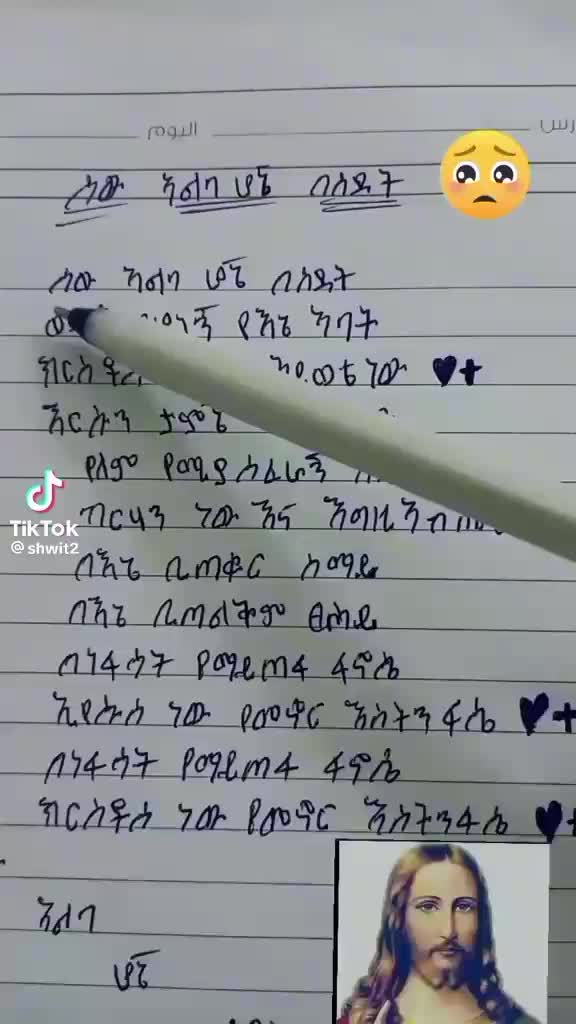 اليوم
ሰው አልባ ሆኜ በስደት
ሰው አልባ ሆኜ በስደት
የእኔ አባት
ክርስቶስ ነው ♥+
እርሱን
የለም የሚያስፈራኝ
ጣርያን ነው እና
በእኔ ቢጠቁር ሰማይ
በእኔ ቢጠልቅም ፀሐይ
በነፋሳት የማይጠፋ ፋኖሴ
ኢየሱስ ነው የመኖር እስትንፋሴ ♥+
በነፋሳት የማይጠፋ ፋኖሴ
ክርስቶስ ነው የመኖር እስትንፋሴ ♥+
አልባ
ሆኜ
TikTok
@shwit2